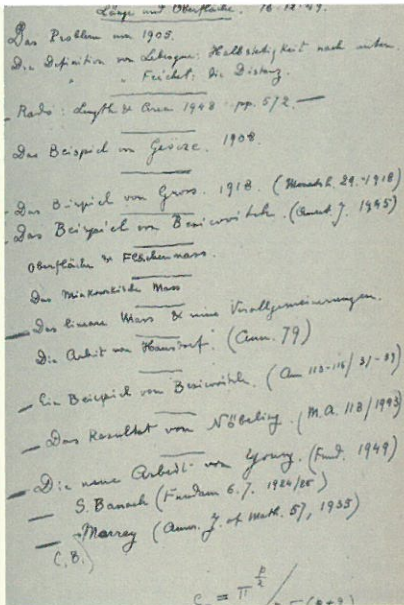 Länge und Oberfläche. 16·12·49.
Das Problem von 1905.
Die Definition von Lebesgue: Halbstetigkeit nach unten.
" " Fréchet: die Distanz.
Rado: Length & Area 1948 pp. 572.
Das Beispiel von Geöcze. 1908.
Das Beispiel von Gross. 1918. (Monatsh. 29.-1918)
Das Beispiel von Besicovitch. (Quart. J. 1945)
Oberfläche & Flächenmass.
Das Minkowskische Mass
Das lineare Mass & seine Verallgemeinerungen.
Die Arbeit von Hausdorf. (Ann. 79)
Ein Beispiel von Besicovitch. (
Das Resultat von Nöbeling. (M.A. 118/
Die neue Arbeit von Young. (Fund. 1949)
S. Banach (Fundam 6. 7. 1924/25)
(Amer. J. of Math. 57, 1935)